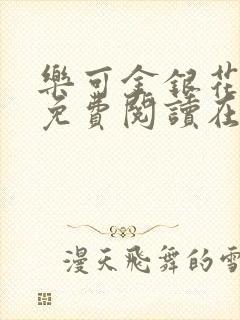 樂可金銀花
免費閱讀在
漫天飛舞的雪